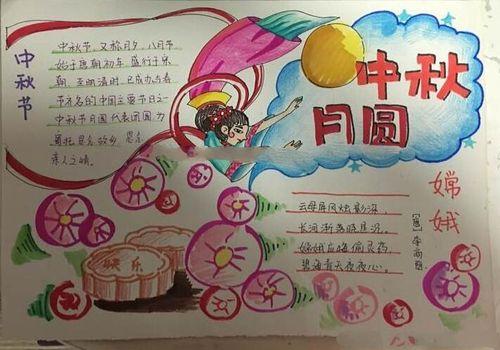 中秋节
中秋节，又称月夕、八月节
始于唐朝初年，盛行于宋
朝，至明清时，已成为与春
节齐名的中国主要节日之一
中秋节月圆代表团圆为
寄托思念故乡，思念
亲人之情。
中秋
月圆
嫦娥
[唐] 李商隐
云母屏风烛影深，
长河渐落晓星沉。
嫦娥应悔偷灵药
碧海青天夜夜心。
快乐